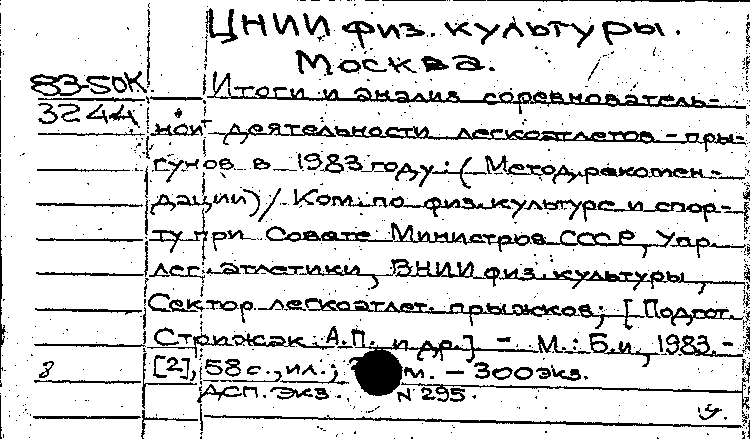 ЦНИИ физ. культуры.
Москва.
83-50К Итоги и анализ соревнователь-
3244 ной деятельности легкоатлетов-пры-
гунов в 1983 году: (Метод.рекомен-
дации)/ Ком. по физ.культуре и спор-
ту при Совете Министров СССР, Упр.
лег. атлетики, ВНИИ физ.культуры,
Сектор легкоатлет. прыжков; [Подгот.
Стрижак А.П. и др.] - М.: Б.и., 1983.-
8 [2], 58 с., ил.; м. - 300 экз.
ДСП. Экз. N 295.